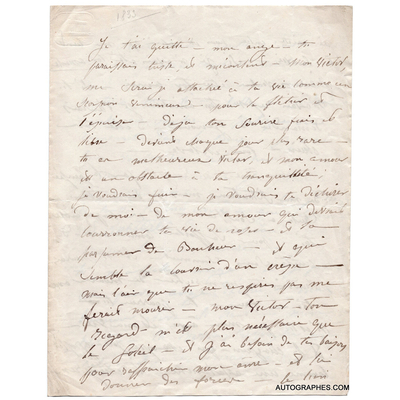 1833
Je t'ai quitté – mon ange – tu
paraissais triste et mécontent – mon Victor
me serai je attachée à ta vie comme un
serpent venimeux – pour la flétrir et
l'épuiser – déjà ton sourire frais et
libre – devient chaque jour plus rare –
tu es malheureux Victor, et mon amour
est un obstacle à ta tranquillité
je voudrais fuir – je voudrais te délivrer
de moi – de mon amour qui devrait
couronner ta vie de roses – et la
parfumer de Bonheur – et qui
semble la couvrir d'un crêpe –
mais l'air que tu ne respires pas me
ferait mourir – mon Victor – ton
regard m'est plus nécessaire que
le Soleil – et j'ai besoin de tes baisers
pour rafraichir mon âme – et lui
donner des forces – le
AUTOGRAPHES.COM